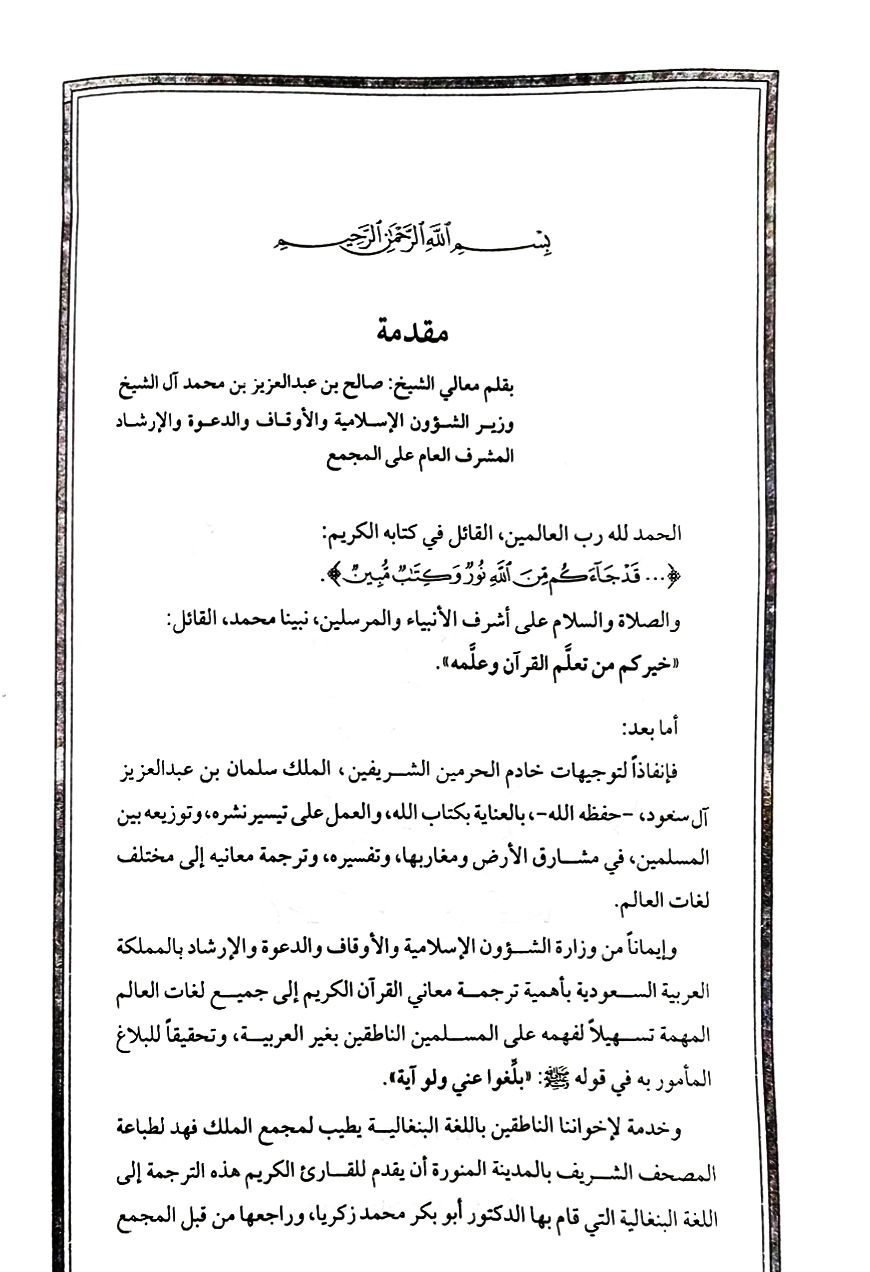 بِسْمِ ٱللَّهِ ٱلرَّحْمَٰنِ ٱلرَّحِيمِ
مقدمة
بقلم معالي الشيخ: صالح بن عبدالعزيز بن محمد آل الشيخ
وزير الشؤون الإسلامية والأوقاف والدعوة والإرشاد
المشرف العام على المجمع
الحمد لله رب العالمين، القائل في كتابه الكريم:
﴿... قَدْ جَآءَكُم مِّنَ ٱللَّهِ نُورٌ وَكِتَٰبٌ مُّبِينٌ﴾.
والصلاة والسلام على أشرف الأنبياء والمرسلين، نبينا محمد، القائل:
«خيركم من تعلَّم القرآن وعلَّمه».
أما بعد:
فإنفاذاً لتوجيهات خادم الحرمين الشريفين، الملك سلمان بن عبدالعزيز
آل سعود، -حفظه الله-، بالعناية بكتاب الله، والعمل على تيسير نشره، وتوزيعه بين
المسلمين، في مشارق الأرض ومغاربها، وتفسيره، وترجمة معانيه إلى مختلف
لغات العالم.
وإيماناً من وزارة الشؤون الإسلامية والأوقاف والدعوة والإرشاد بالمملكة
العربية السعودية بأهمية ترجمة معاني القرآن الكريم إلى جميع لغات العالم
المهمة تسهيلاً لفهمه على المسلمين الناطقين بغير العربية، وتحقيقاً للبلاغ
المأمور به في قوله ﷺ: «بلِّغوا عني ولو آية».
وخدمة لإخواننا الناطقين باللغة البنغالية يطيب لمجمع الملك فهد لطباعة
المصحف الشريف بالمدينة المنورة أن يقدم للقارئ الكريم هذه الترجمة إلى
اللغة البنغالية التي قام بها الدكتور أبو بكر محمد زكريا، وراجعها من قبل المجمع